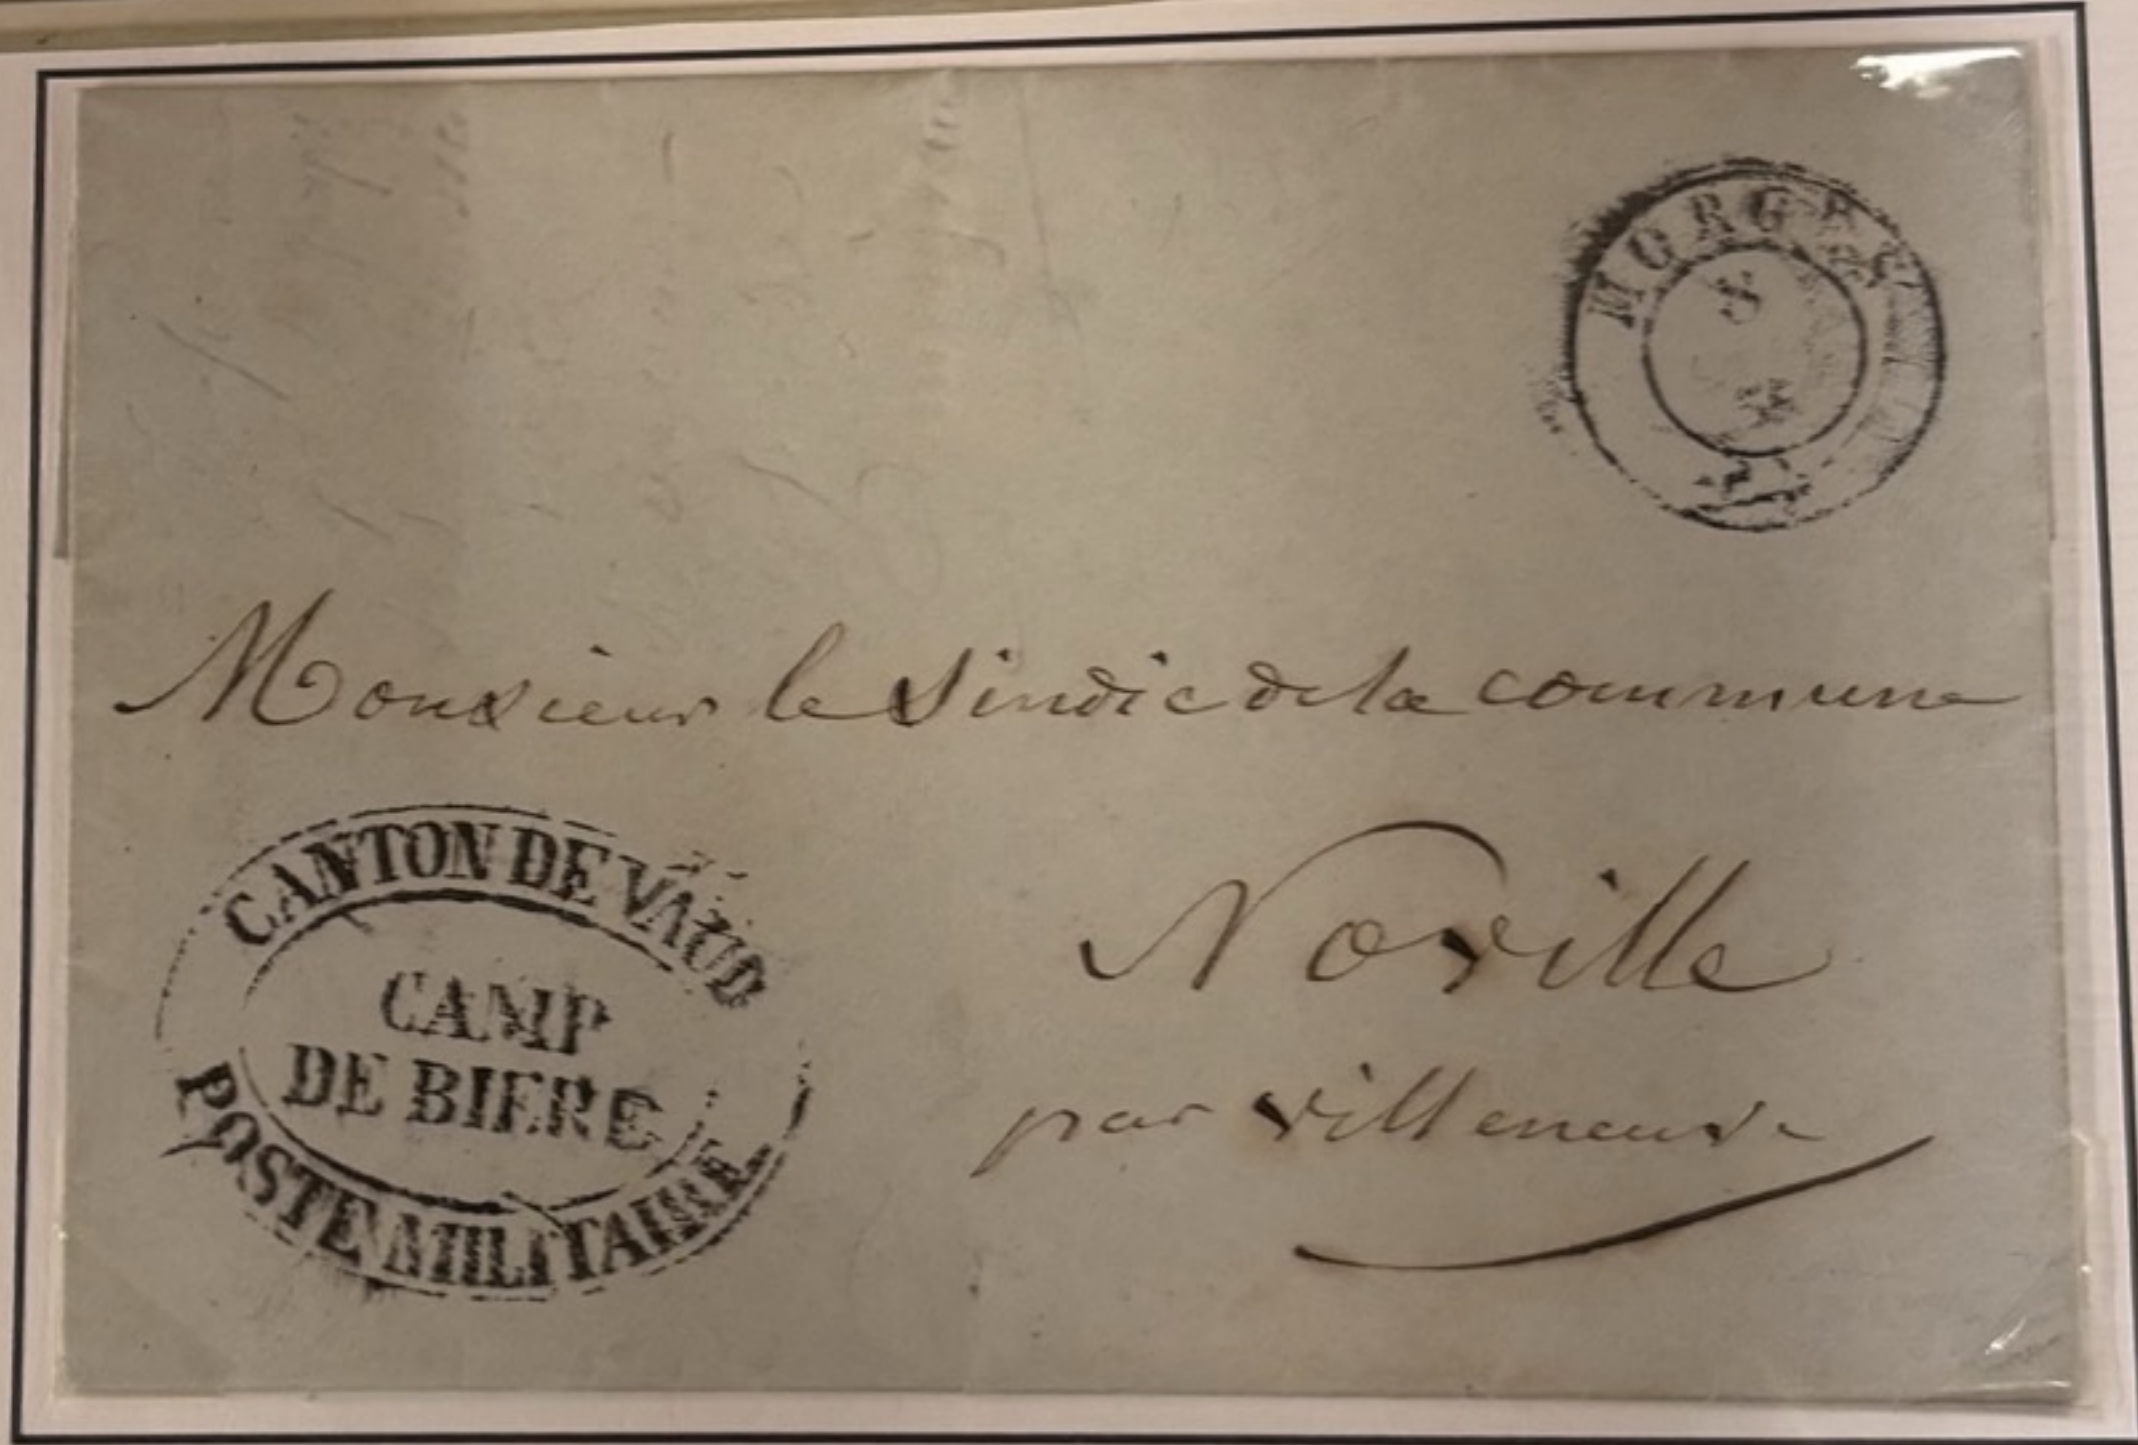 MORGES
Monsieur le Sindic de la commune
Noville
par villeneuve
CANTON DE VAUD
CAMP
DE BIERE
POSTE MILITAIRE